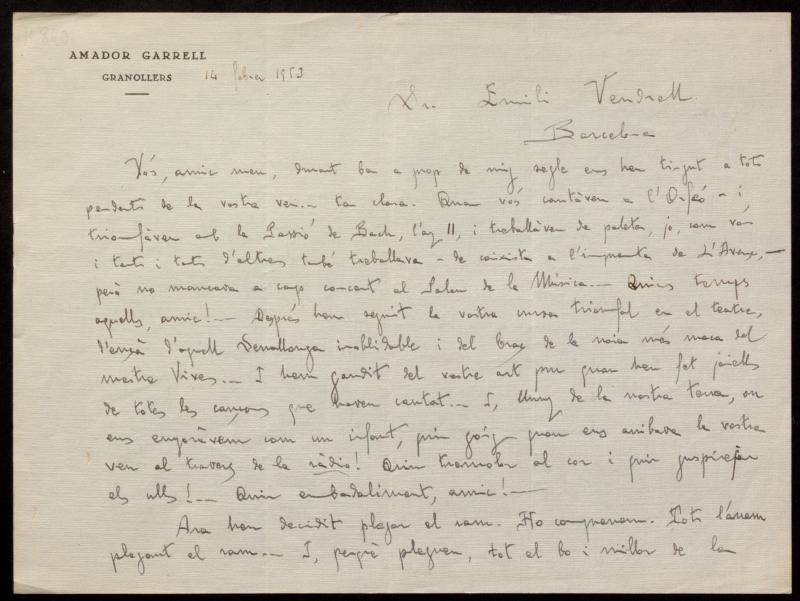 AMADOR GARRELL
GRANOLLERS 14 febrer 1953
Sr. Emili Vendrell
Barcelona
Vós, amic meu, durant ben a prop de mig segle ens heu tingut a tots
pendents de la vostra veu... tan clara. Quan vós cantàveu a l'Orfeó - i
triomfàveu amb la Passió de Bach, l'any 11, i treballàveu de paleta, jo, com vós
i tants i tants d'altres també treballava - de caixista a l'impremta de L'Avenç, -
però no mancava a cap concert al Palau de la Música. - Quins temps
aquells, amic! - Després hem seguit la vostra cursa triomfal en el teatre,
d'ençà d'aquell Serrallonga inoblidable i del braç de la noia més maca del
mestre Vives... I hem gaudit del vostre art pur quan heu fet joiells
de totes les cançons que haveu cantat... I, lluny de la nostra terra, on
ens enyoràvem com un infant, quin goig quan ens arribava la vostra
veu al través de la ràdio! Quin tremolar al cor i quin guspirejar
els ulls! - Quin embadaliment, amic! -
Ara heu decidit plegar el ram. Ho comprenem. Tots l'anem
plegant el ram... I, perquè plegueu, tot el bo i millor de la